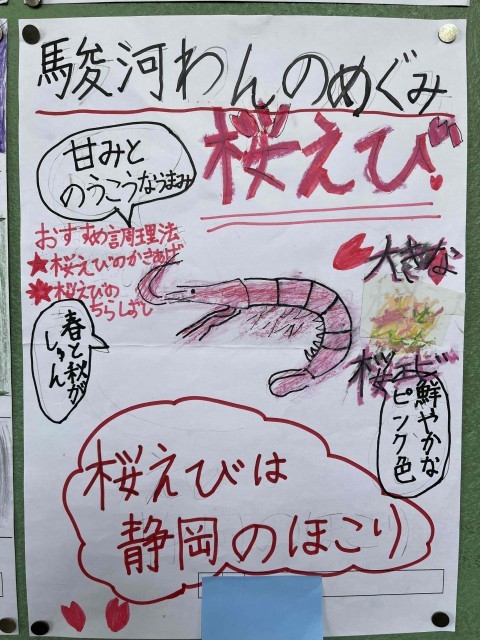 駿河わんのめぐみ
桜えび
甘みと
のうこうなうまみ
おすすめ調理法
★桜えびのかきあげ
★桜えびの
ちらしずし
春と秋が
しゅん
大きな
桜エビ
鮮やかな
ピンク色
桜えびは
静岡のほこり